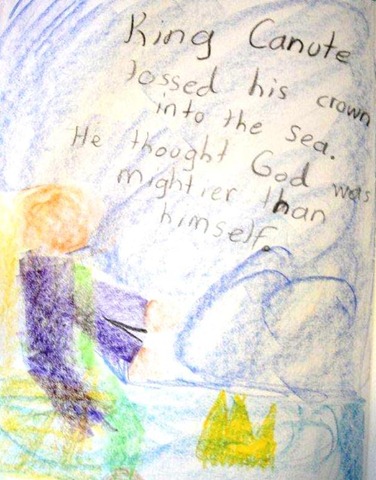 King Canute
tossed his crown
into the sea.
He thought God was
mightier than
himself.